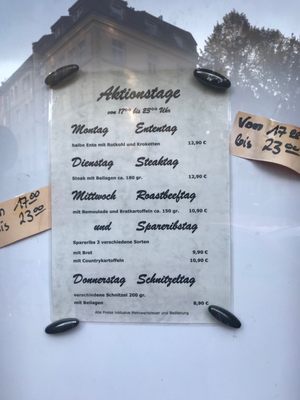 Aktionstage
von 17⁰⁰ bis 23⁰⁰ Uhr
Montag Ententag
halbe Ente mit Rotkohl und Kroketten 12,90 €
Dienstag Steaktag
Steak mit Beilagen ca. 180 gr. 12,90 €
Mittwoch Roastbeeftag
mit Remoulade und Bratkartoffeln ca. 150 gr. 10,90 €
und Spareribstag
Spareribs 3 verschiedene Sorten
mit Brot 9,90 €
mit Countrykartoffeln 10,90 €
Donnerstag Schnitzeltag
verschiedene Schnitzel 200 gr.
mit Beilagen 8,90 €
Alle Preise inklusive Mehrwertsteuer und Bedienung
Von 17⁰⁰
bis 23⁰⁰
17⁰⁰
23⁰⁰